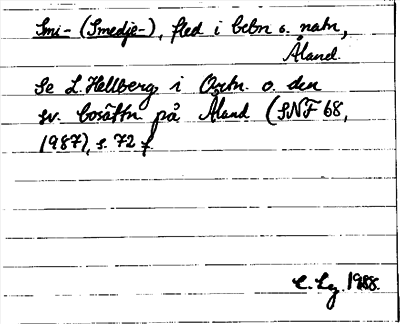 Smi- (Smedje-), fled i bebn o. natn,
Åland.
Se L. Hellberg i Ortn. o. den
sv. bosättn på Åland (SNF 68,
1987), s. 72 f.
C. Lg. 1988.